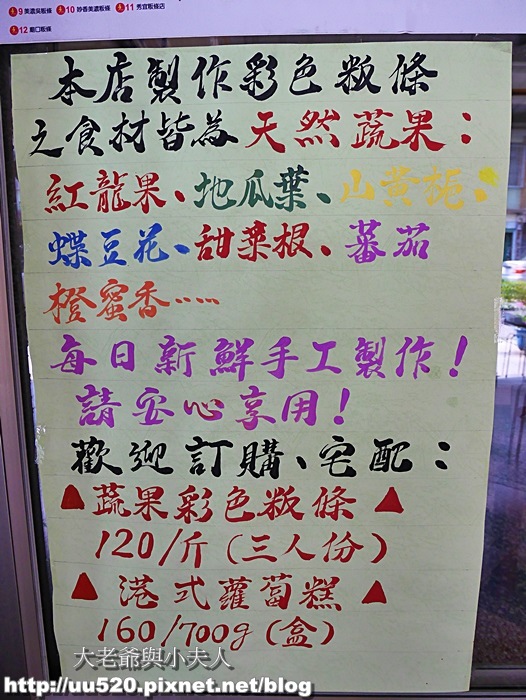 9 美濃吳粄條 10 妙香美濃粄條 11 秀宜粄條店
12 廟口粄條
本店製作彩色粄條
之食材皆為天然蔬果：
紅龍果、地瓜葉、山黃梔、
蝶豆花、甜菜根、蕃茄
橙蜜香……
每日新鮮手工製作！
請安心享用！
歡迎訂購、宅配：
▲蔬果彩色粄條▲
120/斤(三人份)
▲港式蘿蔔糕▲
160/700g(盒)
大老爺與小夫人
http://uu520.pixnet.net/blog